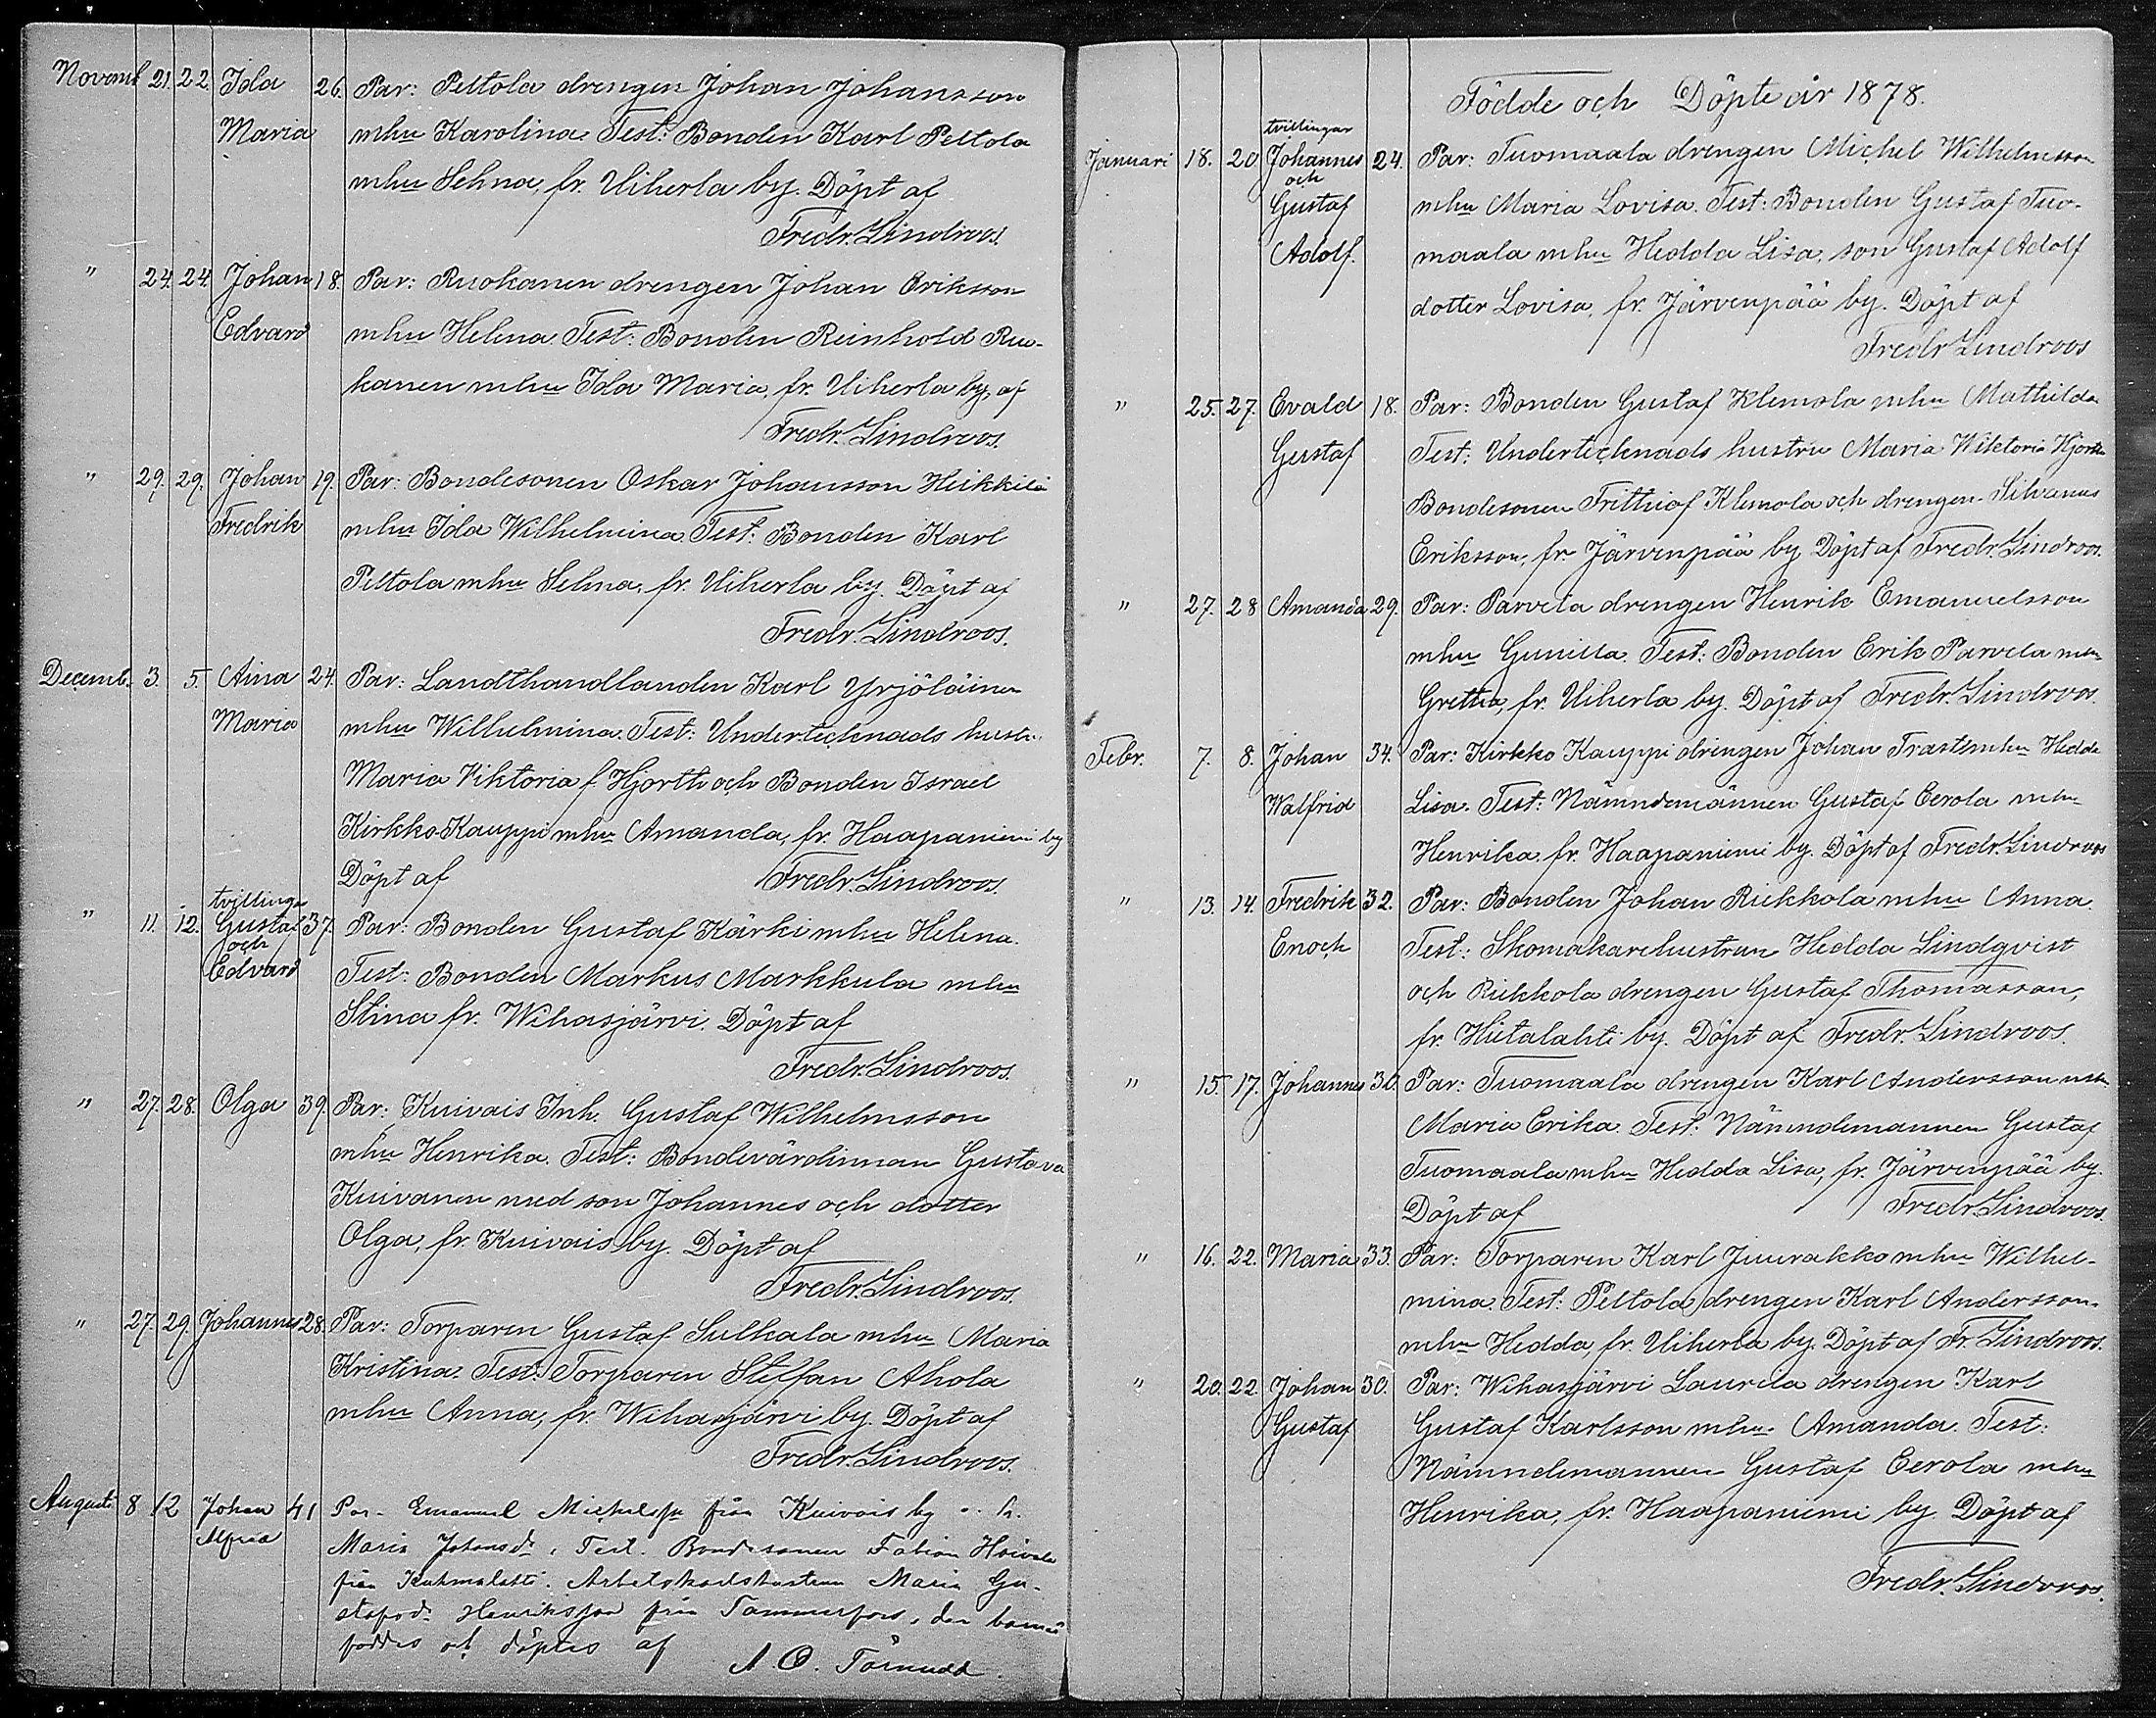 Novemb 21. 22. Ida 26. Par: Peltola drengen Johan Johansson
Maria mhu Karolina. Test: Bonden Karl Peltola
mhu Selma, fr. Uiherla by. Döpt af
Fredr. Lindroos.
" 24. 24. Johan 18. Par: Ruokanen drengen Johan Eriksson
Edvard mhu Helena Test: Bonden Reinhold Ruo-
kanen mhu Ida Maria, fr. Uiherla by, af
Fredr. Lindroos.
" 29. 29. Johan 19. Par: Bondesonen Oskar Johansson Heikkilä
Fredrik mhu Ida Wilhelmina. Test: Bonden Karl
Peltola mhu Selma, fr. Uiherla by. Döpt af
Fredr. Lindroos.
Decemb. 3. 5. Aina 24. Par: Landthandlanden Karl Yrjöläinen
Maria mhu Wilhelmina. Test: Undertecknads hustr.
Maria Viktoria f. Hjorth och Bonden Israel
Kirkko-Kauppi mhu Amanda, fr. Haapaniemi by
Döpt af Fredr. Lindroos.
tvillingar
" 11. 12. Gustaf 37. Par: Bonden Gustaf Kärki mhu Helena.
och
Edvard Test: Bonden Markus Markkula mhu
Stina fr. Wihasjärvi. Döpt af
Fredr. Lindroos.
" 27. 28. Olga 39. Par: Kuivais Inh. Gustaf Wilhelmsson
mhu Henrika. Test: Bondevärdinnan Gustava
Kuivanen med son Johannes och dotter
Olga, fr. Kuivais by. Döpt af
Fredr. Lindroos.
" 27. 29. Johannes 28. Par: Torparen Gustaf Sulkala mhu Maria
Kristina. Test: Torparen Steffan Ahola
mhu Anna, fr. Wihasjärvi by. Döpt af
Fredr. Lindroos.
Augusti 8 12 Johan 41 Par. Emanuel Michelss. från Kuivais by o. h.
Alfred Maria Johansdr. Test. Bondesonen Fabian
från Kuhmalahti. Arbetskarlshustrun Maria Gu-
stafsdr. Henriksson från Tammerfors, der barnet
föddes och döptes af A. O. Törnudd.
Födde och Döpte år 1878.
tvillingar
Januari 18. 20 Johannes 24. Par: Tuomaala drengen Michel Wilhelmsson
och
Gustaf mhu Maria Lovisa. Test: Bonden Gustaf Tuo-
Adolf. maala mhu Hedda Lisa, son Gustaf Adolf
dotter Lovisa, fr. Järvenpää by. Döpt af
Fredr Lindroos
" 25. 27. Evald 18. Par: Bonden Gustaf Klemola mhu Mathilda
Gustaf Test: Undertecknads hustru Maria Wiktoria Hjorth
Bondesonen Frithiof Klemola och drengen Silvanus
Eriksson, fr. Järvenpää by Döpt af Fredr. Lindroos.
" 27. 28 Amanda 29. Par: Parvela drengen Henrik Emanuelsson
mhu Gunilla. Test: Bonden Erik Parvela mhu
Gretha, fr. Uiherla by. Döpt af Fredr. Lindroos.
Febr. 7. 8. Johan 34. Par: Kirkko Kauppi drengen Johan Trast mhu Hedda
Walfrid Lisa. Test: Nämndemannen Gustaf Eerola mhu
Henrika, fr. Haapaniemi by. Döpt af Fredr. Lindroos
" 13. 14. Fredrik 32. Par: Bonden Johan Riekkola mhu Anna.
Enoch Test: Skomakarehustrun Hedda Lindqvist
och Riekkola drengen Gustaf Thomasson,
fr. Hietalahti by. Döpt af Fredr. Lindroos.
" 15. 17. Johannes 30. Par: Tuomaala drengen Karl Andersson mhu
Maria Erika. Test: Nämndemannen Gustaf
Tuomaala mhu Hedda Lisa, fr. Järvenpää by.
Döpt af Fredr. Lindroos.
" 16. 22. Maria 33. Par: Torparen Karl Juurakko mhu Wilhel-
mina. Test: Peltola drengen Karl Andersson
mhu Hedda, fr. Uiherla by. Döpt af Fr. Lindroos.
" 20. 22. Johan 30. Par: Wihasjärvi Laurila drengen Karl
Gustaf Gustaf Karlsson mhu Amanda. Test:
Nämndemannen Gustaf Eerola mhu
Henrika, fr. Haapaniemi by Döpt af
Fredr. Lindroos.